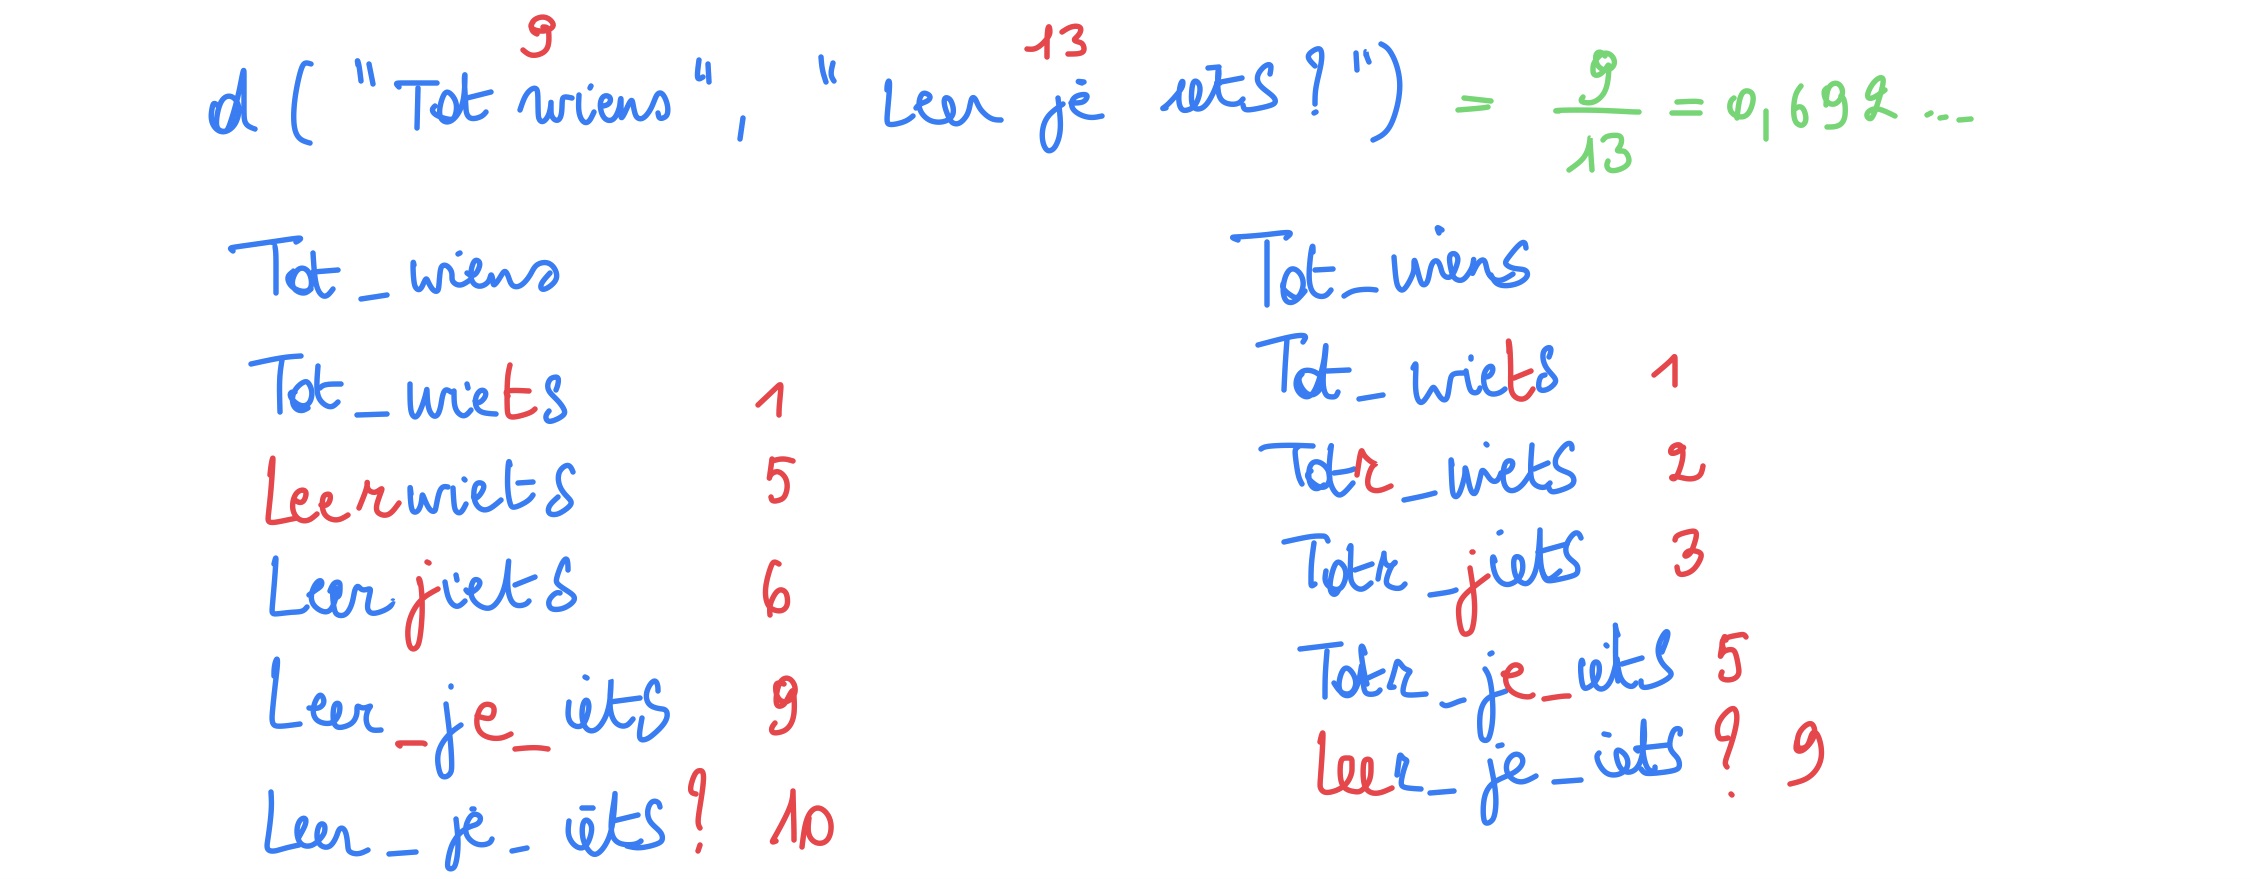 9 13
d("Tot wiens", "Leer je iets?") = 9/13 = 0,692...
Tot_wiens
Tot_wiets 1
Leerwiets 5
Leerjiets 6
Leer_je_iets 9
Leer_je_iets? 10
Tot_wiens
Tot_wiets 1
Totr_wiets 2
Totr_jiets 3
Totr_je_iets 5
Leer_je_iets? 9